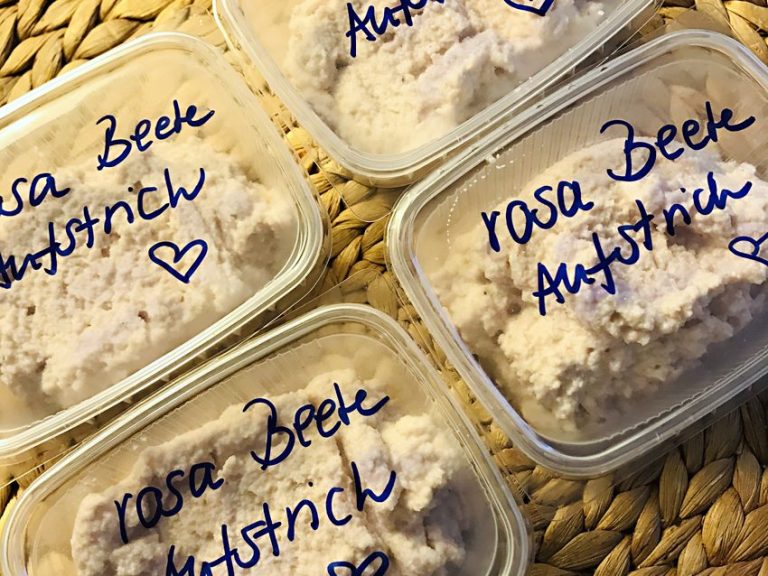 Aufstrich
rosa Beete
Aufstrich
rosa Beete
Aufstrich
rosa Beete
Aufstrich